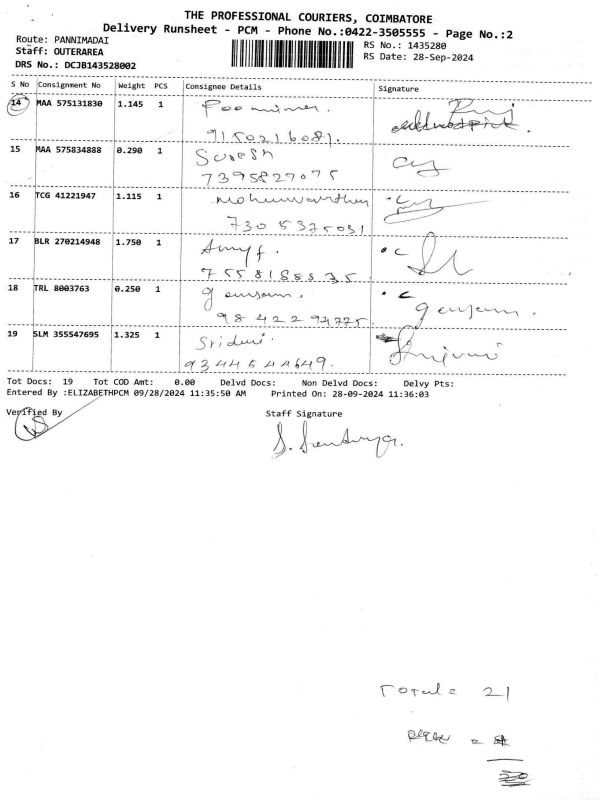 THE PROFESSIONAL COURIERS, COIMBATORE
Delivery Runsheet - PCM - Phone No.:0422-3505555 - Page No.:2
Route: PANNIMADAI
Staff: OUTERAREA
DRS No.: DCJB143528002
RS No.: 1435280
RS Date: 28-Sep-2024
S No Consignment No Weight PCS Consignee Details Signature
14 MAA 575131830 1.145 1
9150216081.
15 MAA 575834888 0.290 1 Suresh
7395827075
16 TCG 41221947 1.115 1
7305375031
17 BLR 270214948 1.750 1
7558188835.
18 TRL 8003763 0.250 1
9842294775.
19 SLM 355547695 1.325 1
9344544649.
Tot Docs: 19 Tot COD Amt: 0.00 Delvd Docs: Non Delvd Docs: Delvy Pts:
Entered By :ELIZABETHPCM 09/28/2024 11:35:50 AM Printed On: 28-09-2024 11:36:03
Verified By Staff Signature
Total = 21